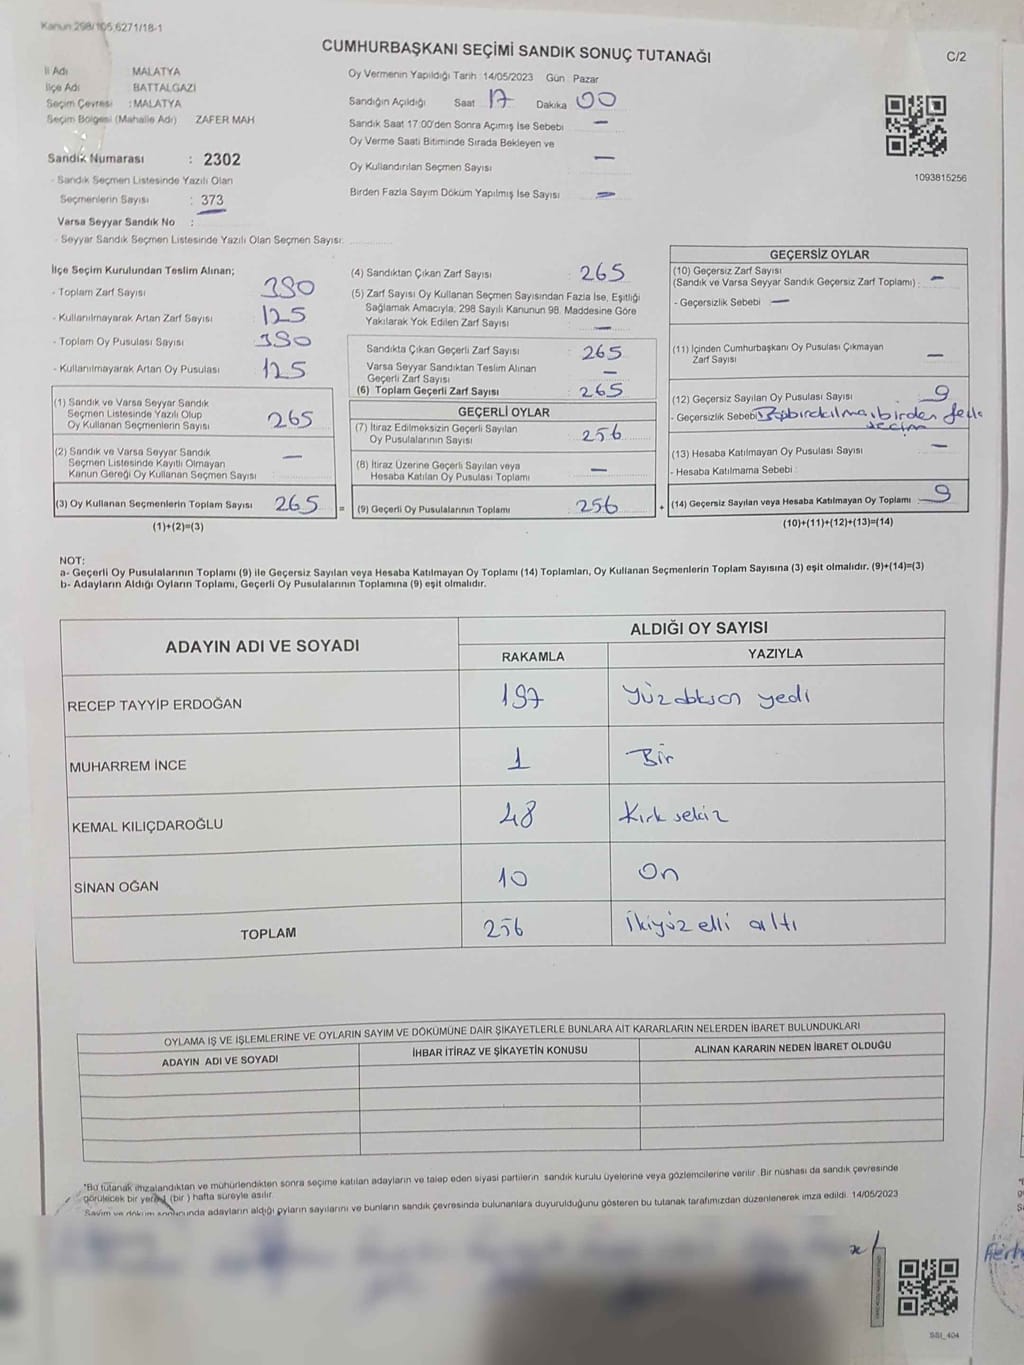 Kanun 298/105,6271/18-1
CUMHURBAŞKANI SEÇİMİ SANDIK SONUÇ TUTANAĞI
C/2
İl Adı MALATYA
İlçe Adı BATTALGAZİ
Seçim Çevresi : MALATYA
Seçim Bölgesi (Mahalle Adı) ZAFER MAH
Sandık Numarası : 2302
- Sandık Seçmen Listesinde Yazılı Olan
Seçmenlerin Sayısı : 373
Varsa Seyyar Sandık No :
- Seyyar Sandık Seçmen Listesinde Yazılı Olan Seçmen Sayısı:
Oy Vermenin Yapıldığı Tarih :14/05/2023 Gün : Pazar
Sandığın Açıldığı Saat 17 Dakika 00
Sandık Saat 17:00'den Sonra Açımış İse Sebebi —
Oy Verme Saati Bitiminde Sırada Bekleyen ve
Oy Kullandırılan Seçmen Sayısı —
Birden Fazla Sayım Döküm Yapılmış İse Sayısı —
1093815256
İlçe Seçim Kurulundan Teslim Alınan;
- Toplam Zarf Sayısı 390
- Kullanılmayarak Artan Zarf Sayısı 125
- Toplam Oy Pusulası Sayısı 390
- Kullanılmayarak Artan Oy Pusulası 125
(1) Sandık ve Varsa Seyyar Sandık
Seçmen Listesinde Yazılı Olup
Oy Kullanan Seçmenlerin Sayısı 265
(2) Sandık ve Varsa Seyyar Sandık
Seçmen Listesinde Kayıtlı Olmayan
Kanun Gereği Oy Kullanan Seçmen Sayısı —
(3) Oy Kullanan Seçmenlerin Toplam Sayısı 265 =
(1)+(2)=(3)
(4) Sandıktan Çıkan Zarf Sayısı : 265
(5) Zarf Sayısı Oy Kullanan Seçmen Sayısından Fazla İse, Eşitliği
Sağlamak Amacıyla, 298 Sayılı Kanunun 98. Maddesine Göre
Yakılarak Yok Edilen Zarf Sayısı —
Sandıkta Çıkan Geçerli Zarf Sayısı : 265
Varsa Seyyar Sandıktan Teslim Alınan
Geçerli Zarf Sayısı —
(6) Toplam Geçerli Zarf Sayısı : 265
GEÇERLİ OYLAR
(7) İtiraz Edilmeksizin Geçerli Sayılan
Oy Pusulalarının Sayısı : 256
(8) İtiraz Üzerine Geçerli Sayılan veya
Hesaba Katılan Oy Pusulası Toplamı —
(9) Geçerli Oy Pusulalarının Toplamı : 256 +
GEÇERSİZ OYLAR
(10) Geçersiz Zarf Sayısı
(Sandık ve Varsa Seyyar Sandık Geçersiz Zarf Toplamı) : —
- Geçersizlik Sebebi : —
(11) İçinden Cumhurbaşkanı Oy Pusulası Çıkmayan
Zarf Sayısı —
(12) Geçersiz Sayılan Oy Pusulası Sayısı 9
- Geçersizlik Sebebi birden fazla
seçim
(13) Hesaba Katılmayan Oy Pusulası Sayısı —
- Hesaba Katılmama Sebebi :
(14) Geçersiz Sayılan veya Hesaba Katılmayan Oy Toplamı : 9
(10)+(11)+(12)+(13)=(14)
NOT:
a- Geçerli Oy Pusulalarının Toplamı (9) ile Geçersiz Sayılan veya Hesaba Katılmayan Oy Toplamı (14) Toplamları, Oy Kullanan Seçmenlerin Toplam Sayısına (3) eşit olmalıdır. (9)+(14)=(3)
b- Adayların Aldığı Oyların Toplamı, Geçerli Oy Pusulalarının Toplamına (9) eşit olmalıdır.
ADAYIN ADI VE SOYADI ALDIĞI OY SAYISI
RAKAMLA YAZIYLA
RECEP TAYYİP ERDOĞAN 197 Yüzdoksan yedi
MUHARREM İNCE 1 Bir
KEMAL KILIÇDAROĞLU 48 Kırk sekiz
SİNAN OĞAN 10 On
TOPLAM 256 İkiyüz elli altı
OYLAMA İŞ VE İŞLEMLERİNE VE OYLARIN SAYIM VE DÖKÜMÜNE DAİR ŞİKAYETLERLE BUNLARA AİT KARARLARIN NELERDEN İBARET BULUNDUKLARI
ADAYIN ADI VE SOYADI İHBAR İTİRAZ VE ŞİKAYETİN KONUSU ALINAN KARARIN NEDEN İBARET OLDUĞU
"Bu tutanak imzalandıktan ve mühürlendikten sonra seçime katılan adayların ve talep eden siyasi partilerin sandık kurulu üyelerine veya gözlemcilerine verilir. Bir nüshası da sandık çevresinde
görülecek bir yere 1 (bir ) hafta süreyle asılır.
Sayım ve döküm sonucunda adayların aldığı oyların sayılarını ve bunların sandık çevresinde bulunanlara duyurulduğunu gösteren bu tutanak tarafımızdan düzenlenerek imza edildi. 14/05/2023
SSI_404